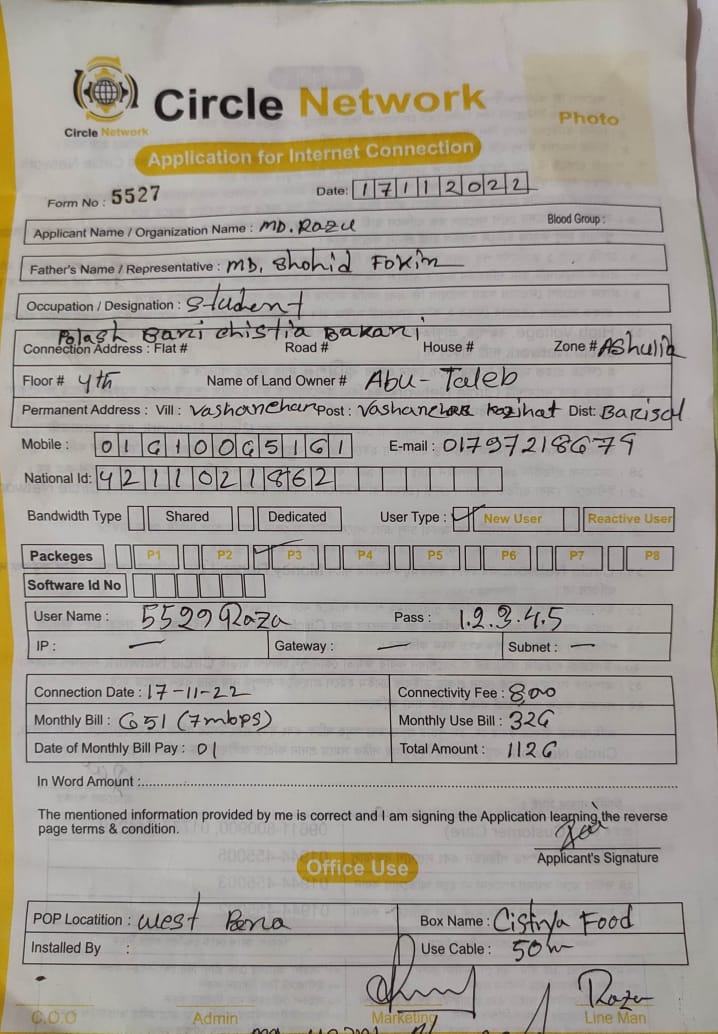 Circle Network
Circle Network
Photo
Application for Internet Connection
Form No : 5527
Date: 17112022
Applicant Name / Organization Name : MD. Razu Blood Group :
Father's Name / Representative : MD. Shohid Fokir
Occupation / Designation : Student
Polash Bari Chistia Bakari
Connection Address : Flat # Road # House # Zone # Ashulia
Floor # 4th Name of Land Owner # Abu-Taleb
Permanent Address : Vill : Vashanchar Post : Vashanchar Kazihat Dist: Barisal
Mobile : 01610065161 E-mail : 01797218679
National Id: 4211021862
Bandwidth Type Shared Dedicated User Type : New User Reactive User
Packeges P1 P2 P3 P4 P5 P6 P7 P8
Software Id No
User Name : Pass : 1.2.3.4.5
IP : — Gateway : — Subnet : —
Connection Date : 17-11-22 Connectivity Fee : 800
Monthly Bill : 651 (7mbps) Monthly Use Bill : 326
Date of Monthly Bill Pay : 01 Total Amount : 1126
In Word Amount :
The mentioned information provided by me is correct and I am signing the Application learning the reverse
page terms & condition.
Applicant's Signature
Office Use
POP Locatition : West Box Name : Food
Installed By : Use Cable : 50m
Razu
C.O.O Admin Marketing Line Man